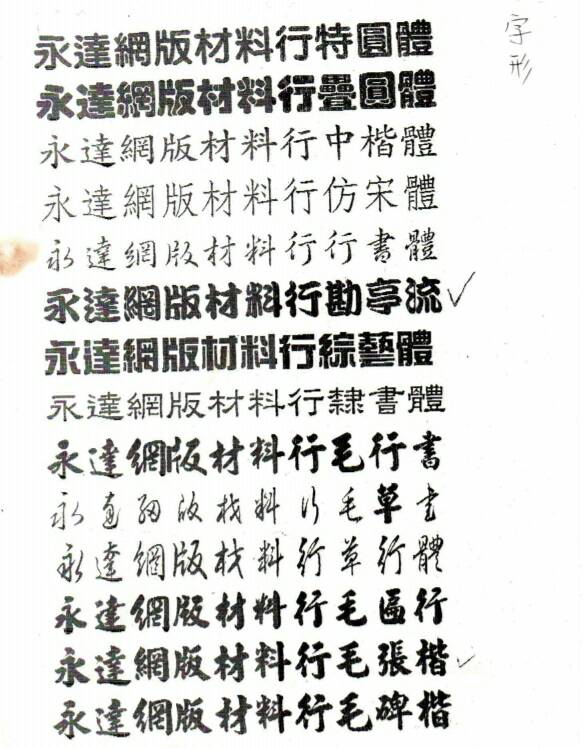 永達網版材料行特圓體
永達網版材料行疊圓體
永達網版材料行中楷體
永達網版材料行仿宋體
永達網版材料行行書體
永達網版材料行勘亭流
永達網版材料行綜藝體
永達網版材料行隸書體
永達網版材料行毛行書
永達網版材料行毛草書
永達網版材料行草行體
永達網版材料行毛匾行
永達網版材料行毛張楷
永達網版材料行毛碑楷
字形